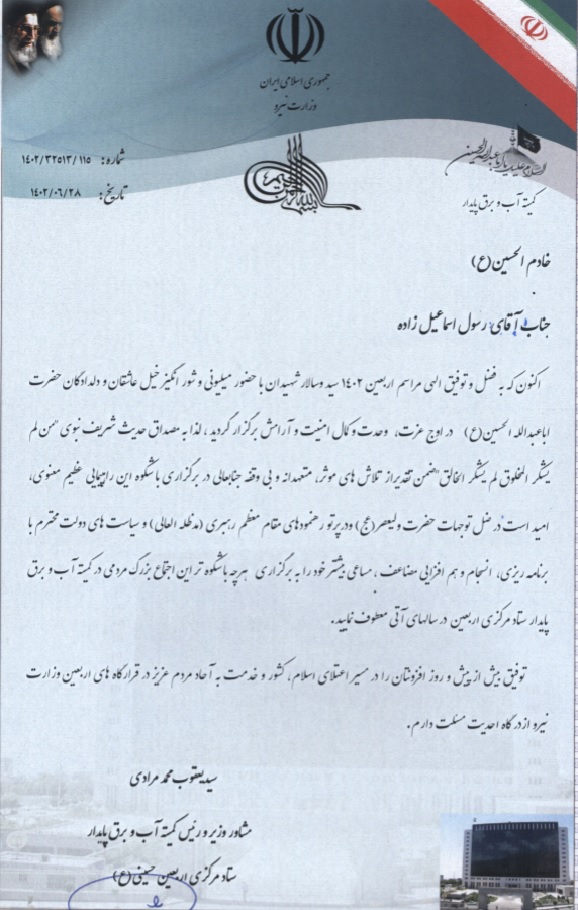 جمهوری اسلامی ایران
وزارت نیرو
شماره: ۱۴۰۲/۳۲۵۱۳/۱۱۵
تاریخ: ۱۴۰۲/۰۶/۲۸
بسم الله الرحمن الرحیم
السلام علیک یا اباعبدالله الحسین
کمیته آب و برق پایدار
خادم الحسین(ع)
جناب آقای رسول اسماعیل زاده
اکنون که به فضل و توفیق الهی مراسم اربعین ۱۴۰۲ سید و سالار شهیدان با حضور میلیونی و شور انگیز خیل عاشقان و دلدادگان حضرت
اباعبدالله الحسین(ع) در اوج عزت، وحدت و کمال امنیت و آرامش برگزار گردید، لذا به مصداق حدیث شریف نبوی "من لم
یشکر المخلوق لم یشکر الخالق" ضمن تقدیر از تلاش های موثر، متعهدانه و بی وقفه جنابعالی در برگزاری باشکوه این راهپیمایی عظیم معنوی،
امید است در ضل توجهات حضرت ولیعصر(عج) و در پرتو رهنمودهای مقام معظم رهبری (مدظله العالی) و سیاست های دولت محترم با
برنامه ریزی، انسجام و هم افزایی مضاعف، مساعی بیشتر خود را به برگزاری هرچه باشکوه تر این اجتماع بزرگ مردمی در کمیته آب و برق
پایدار ستاد مرکزی اربعین در سالهای آتی معطوف نمایید.
توفیق بیش از پیش و روز افزونتان را در مسیر اعتلای اسلام، کشور و خدمت به آحاد مردم عزیز در قرارگاه های اربعین وزارت
نیرو از درگاه احدیت مسئلت دارم.
سید یعقوب محمد مرادی
مشاور وزیر و رئیس کمیته آب و برق پایدار
ستاد مرکزی اربعین حسینی(ع)